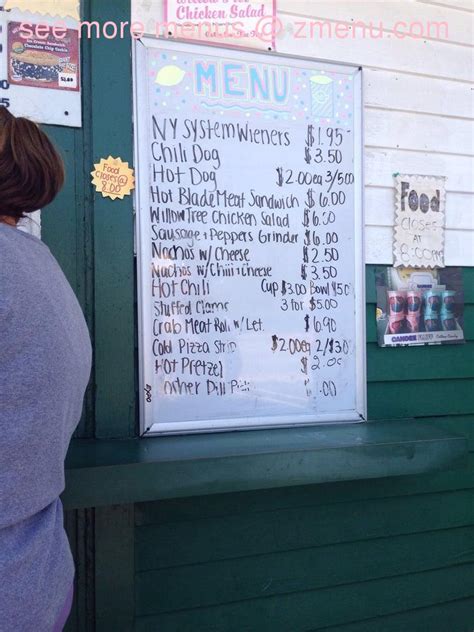 see more menus @ zmenu.com
Chicken Salad
MENU
NY System Wieners $1.95
Chili Dog $3.50
Hot Dog $2.00ea 3/5.00
Hot Blade Meat Sandwich $6.00
Willow Tree Chicken Salad $6.00
Sausage + Peppers Grinder $6.00
Nachos w/ Cheese $2.50
Nachos w/ Chili + Cheese $3.50
Hot Chili Cup $3.00 Bowl 4.50
Stuffed Clams 3 for $5.00
Crab Meat Roll w/ Let. $6.90
Cold Pizza Strip $2.00ea 2/$3.00
Hot Pretzel $2.00
Dill .00
Food
closes @
8:00
Food
closes
AT
8:00